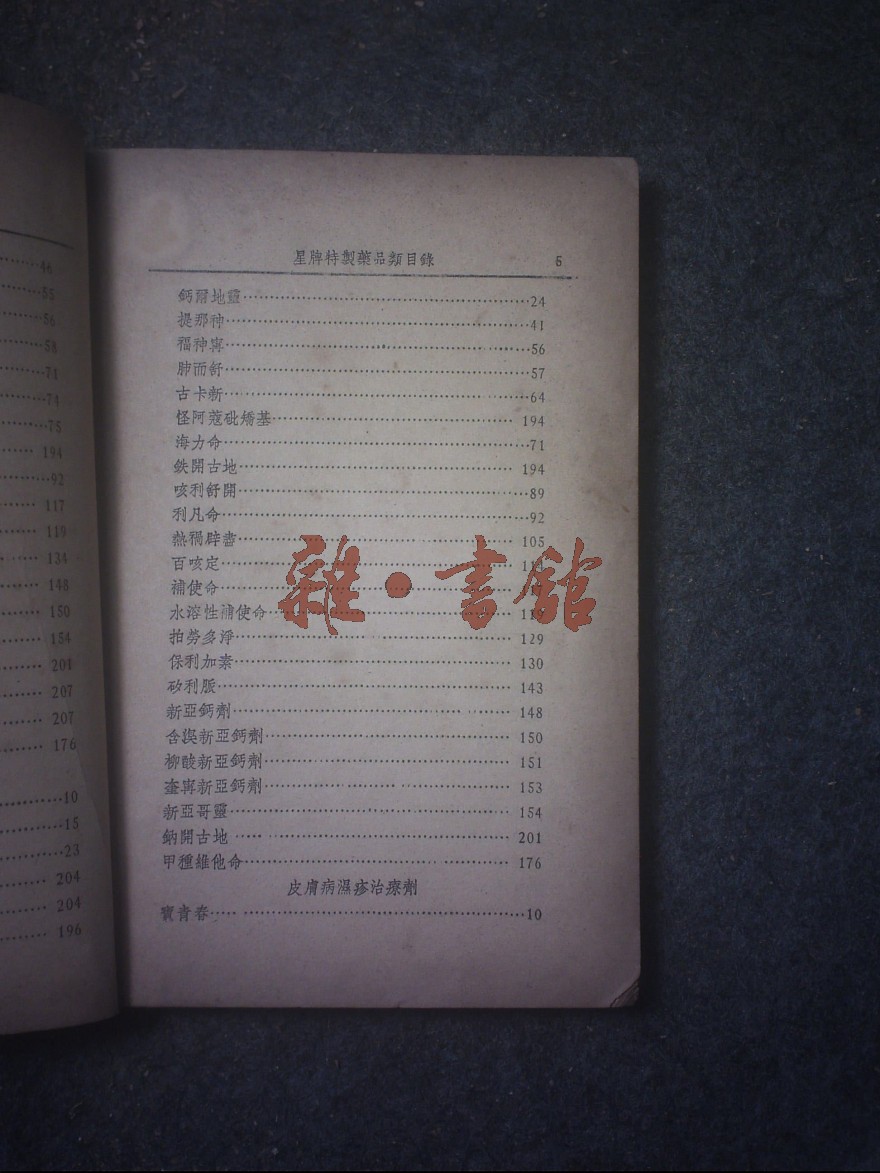 44
55
56
58
71
74
75
194
92
117
119
134
148
150
154
201
207
207
176
10
15
23
204
204
196
星牌特製藥品類目錄 5
鈣爾地靈 24
提那神 41
福神寗 56
肺而舒 57
古卡新 64
怪阿蔻砒矯基 194
海力命 71
鉄開古地 194
咳利舒開 89
利凡命 92
熱獨辟 105
百咳定
補使命
水溶性補使命
拍勞多淨 129
保利加素 130
矽利脤 143
新亞鈣劑 148
含溴新亞鈣劑 150
柳酸新亞鈣劑 151
奎寗新亞鈣劑 153
新亞哥靈 154
鈉開古地 201
甲種維他命 176
皮膚病濕疹治療劑
寶青春 10
雜·書館